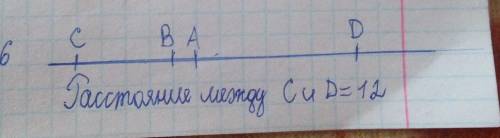 6
C B A D
Расстояние между C и D=12